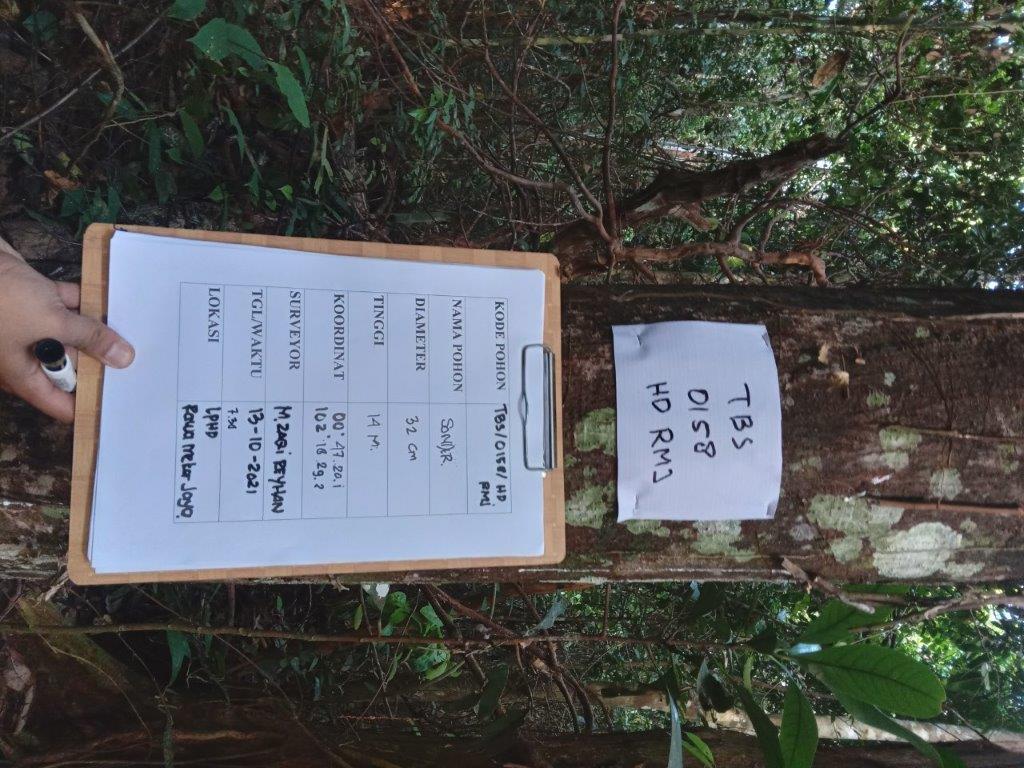 TBS
0158
HD RMJ
KODE POHON TBS/0158/ HD
RMJ
NAMA POHON SONDER.
DIAMETER 32 cm
TINGGI 14 M.
KOORDINAT 00° 47.20.1
102° 18.29.2
SURVEYOR M. ZAQI REYHAN
TGL/WAKTU 13-10-2021
7.30
LOKASI LPHD
Rawa Mekar Jaya.